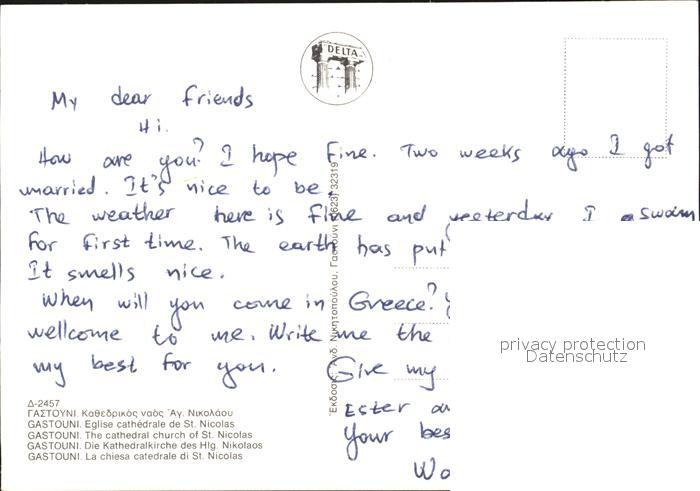 DELTA
My dear friends
Hi.
How are you? I hope fine. Two weeks ago I got
married. It's nice to be.
The weather here is fine and yesterday I swam
for first time. The earth has put
It smells nice.
When will you come in Greece?
wellcome to me. Write me the
my best for you. Give my
Ester
Your bes
Wo
privacy protection
Datenschutz
Δ-2457
ΓΑΣΤΟΥΝΙ. Καθεδρικὸς ναὸς Ἁγ. Νικολάου
GASTOUNI. Eglise cathédrale de St. Nicolas
GASTOUNI. The cathedral church of St. Nicolas
GASTOUNI. Die Kathedralkirche des Hlg. Nikolaos
GASTOUNI. La chiesa catedrale di St. Nicolas
Ἔκδοσις: Ἀνδ. Νικητοπούλου, Γαστούνι (0623) 32319